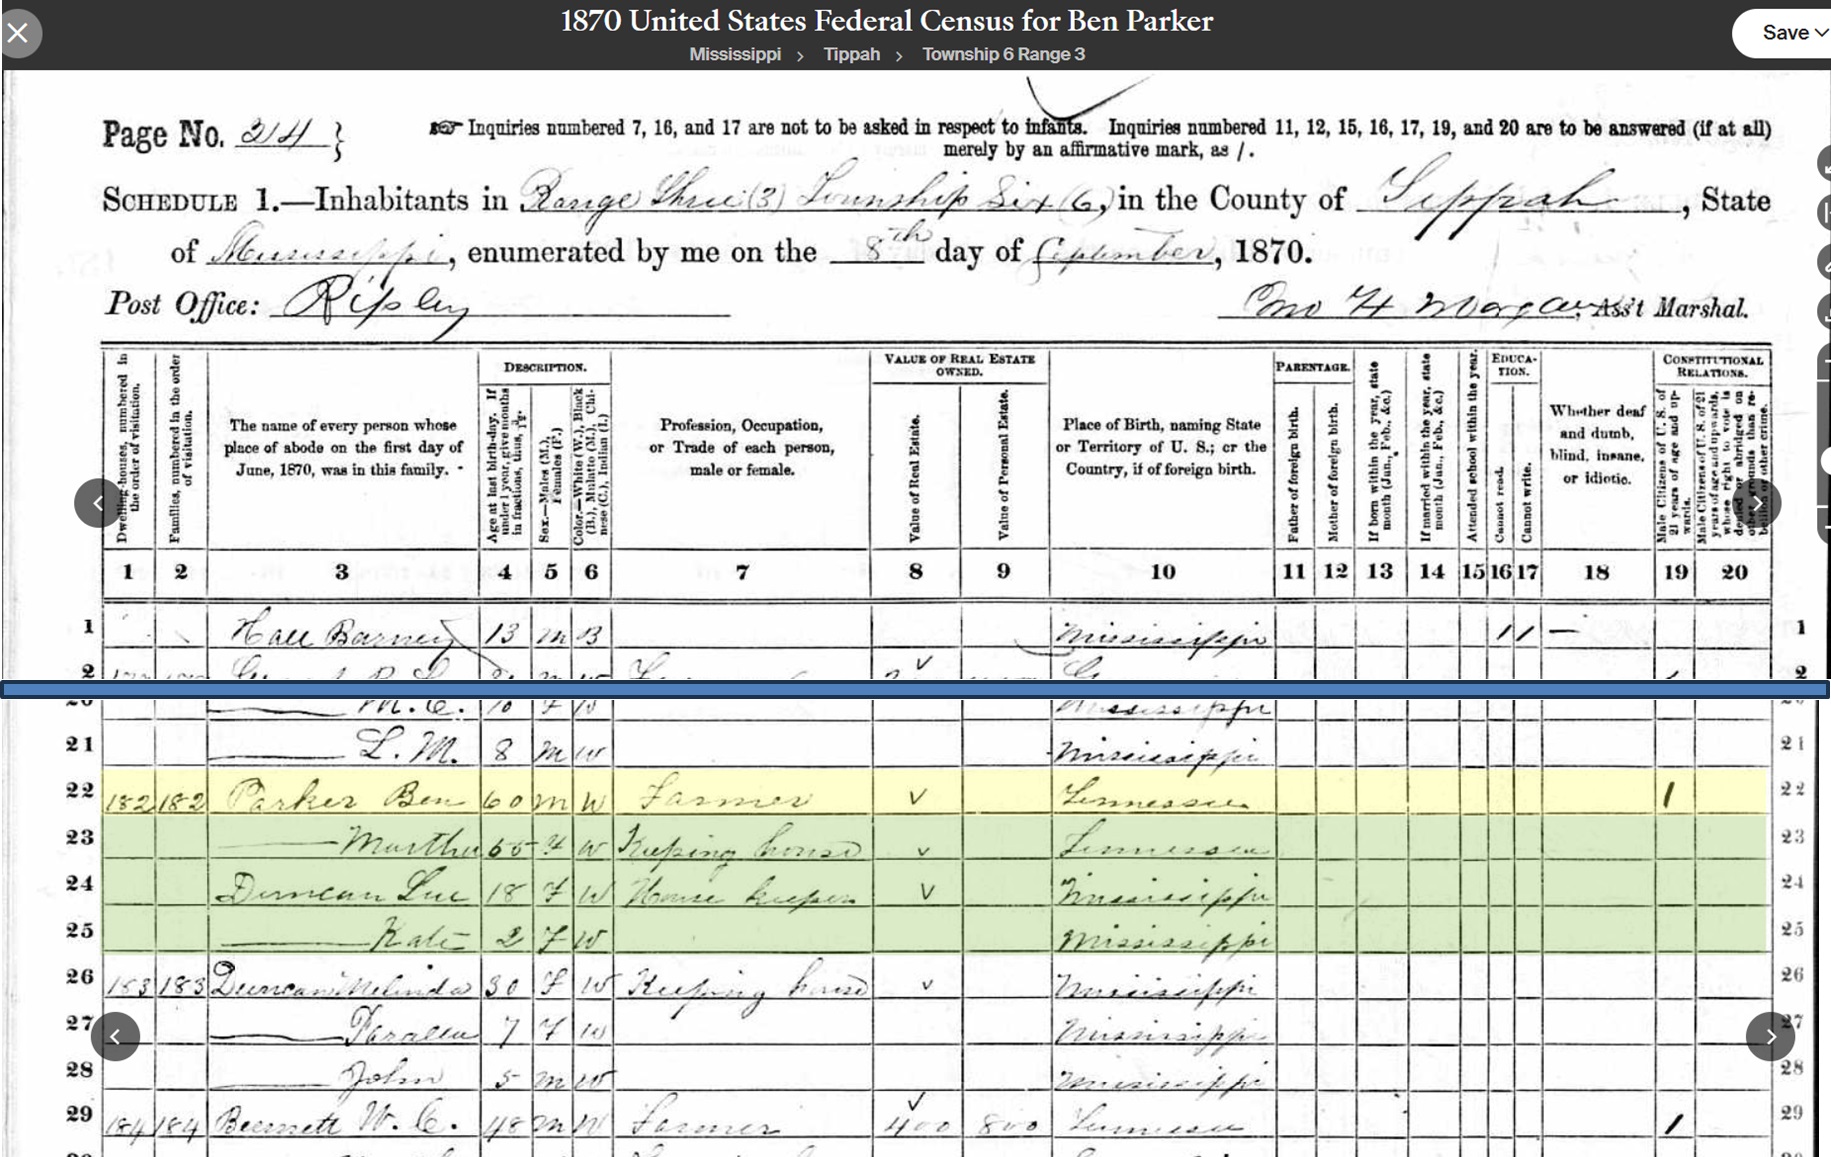 1870 United States Federal Census for Ben Parker
Mississippi > Tippah > Township 6 Range 3
Save
Page No. 24 }
Inquiries numbered 7, 16, and 17 are not to be asked in respect to infants. Inquiries numbered 11, 12, 15, 16, 17, 19, and 20 are to be answered (if at all)
merely by an affirmative mark, as /.
SCHEDULE 1.—Inhabitants in Range Three (3) Township Six (6) in the County of Tippah, State
of Mississippi, enumerated by me on the 8th day of September, 1870.
Post Office: Ripley
Jno H Morgan, Ass't Marshal.
Dwelling-houses, numbered in the order of visitation.
Families, numbered in the order of visitation.
The name of every person whose
place of abode on the first day of
June, 1870, was in this family.
DESCRIPTION.
Age at last birth-day. If under 1 year, give months in fractions, thus,
Sex.—Males (M.), Females (F.)
Color.—White (W.), Black (B.), Mulatto (M.), Chinese (C.), Indian (I.)
Profession, Occupation,
or Trade of each person,
male or female.
VALUE OF REAL ESTATE
OWNED.
Value of Real Estate.
Value of Personal Estate.
Place of Birth, naming State
or Territory of U. S.; or the
Country, if of foreign birth.
PARENTAGE.
Father of foreign birth.
Mother of foreign birth.
If born within the year, state month (Jan., Feb., &c.)
If married within the year, state month (Jan., Feb., &c.)
Attended school within the year.
EDUCA-
TION.
Cannot read.
Cannot write.
Whether deaf
and dumb,
blind, insane,
or idiotic.
CONSTITUTIONAL
RELATIONS.
Male Citizens of U. S. of 21 years of age and upwards.
Male Citizens of U. S. of 21 years of age and upwards, whose right to vote is denied or abridged on other grounds than rebellion or other crime.
1 2 3 4 5 6 7 8 9 10 11 12 13 14 15 16 17 18 19 20
1 Hall Barney 13 M B Mississippi / / — 1
2 2
M. C. 10 F W Mississippi
21 L. M. 8 M W Mississippi 21
22 182 182 Parker Ben 60 M W Farmer Tennessee 1 22
23 Martha 65 F W Keeping house Tennessee 23
24 Duncan Lue 18 F W House keeper Mississippi 24
25 Kate 2 F W Mississippi 25
26 183 183 Duncan Melinda 30 F W Keeping house Mississippi 26
27 7 F W Mississippi 27
28 John 5 M W Mississippi 28
29 184 184 Bennett W. C. 48 M W Farmer 400 800 Tennessee 1 29